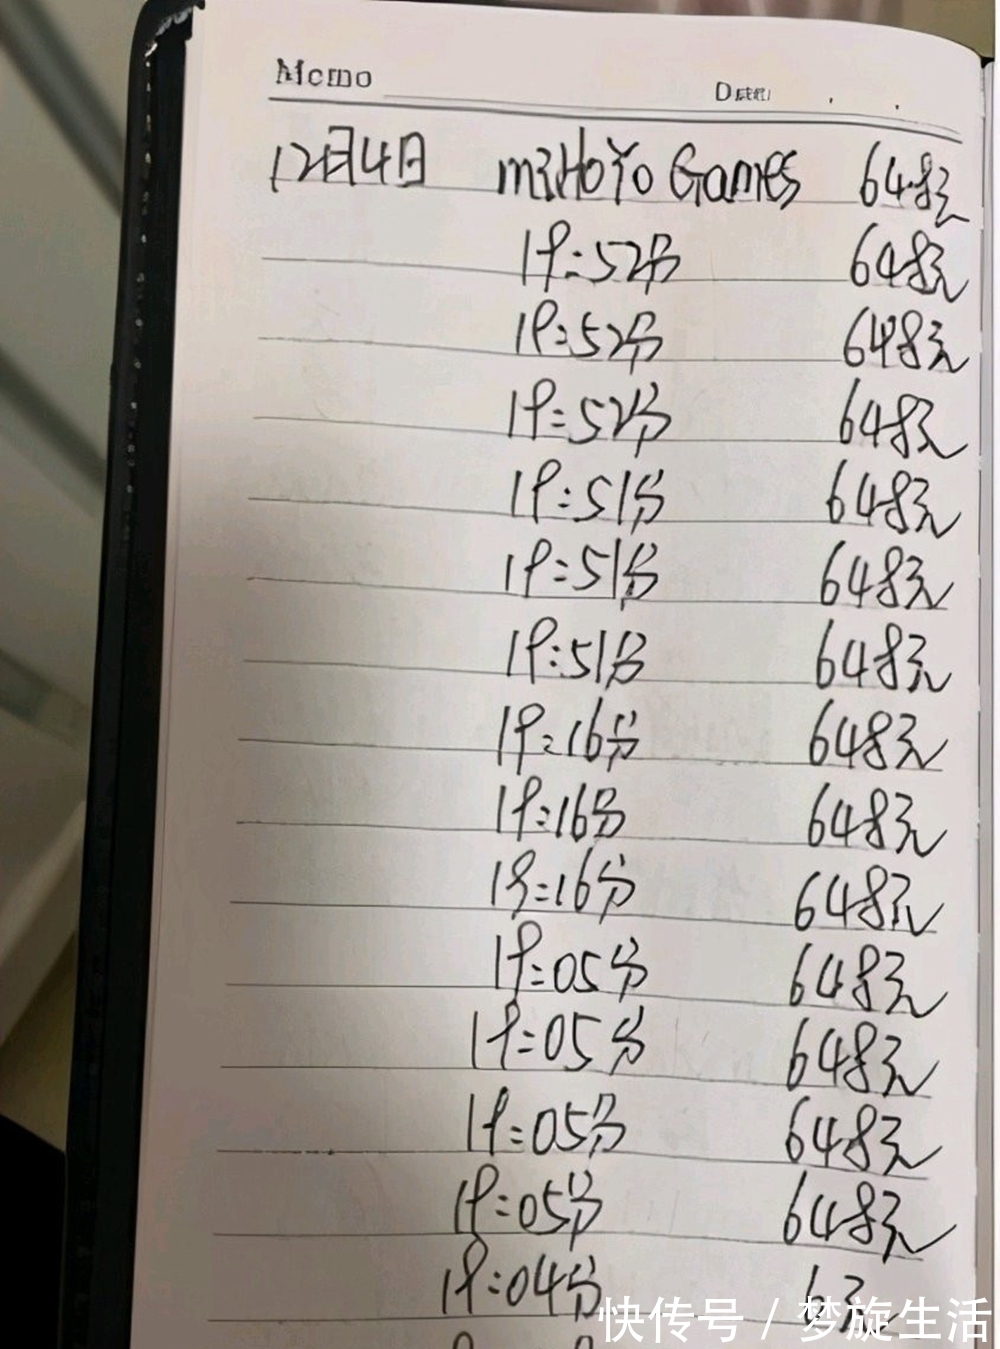 Memo
12月4日 miHoYo Games 648元
19:52分 648元
19:52分 648元
19:52分 648元
19:51分 648元
19:51分 648元
19:51分 648元
19:16分 648元
19:16分 648元
19:16分 648元
19:05分 648元
19:05分 648元
19:05分 648元
19:05分 648元
19:04分 6元
快传号 / 梦旋生活